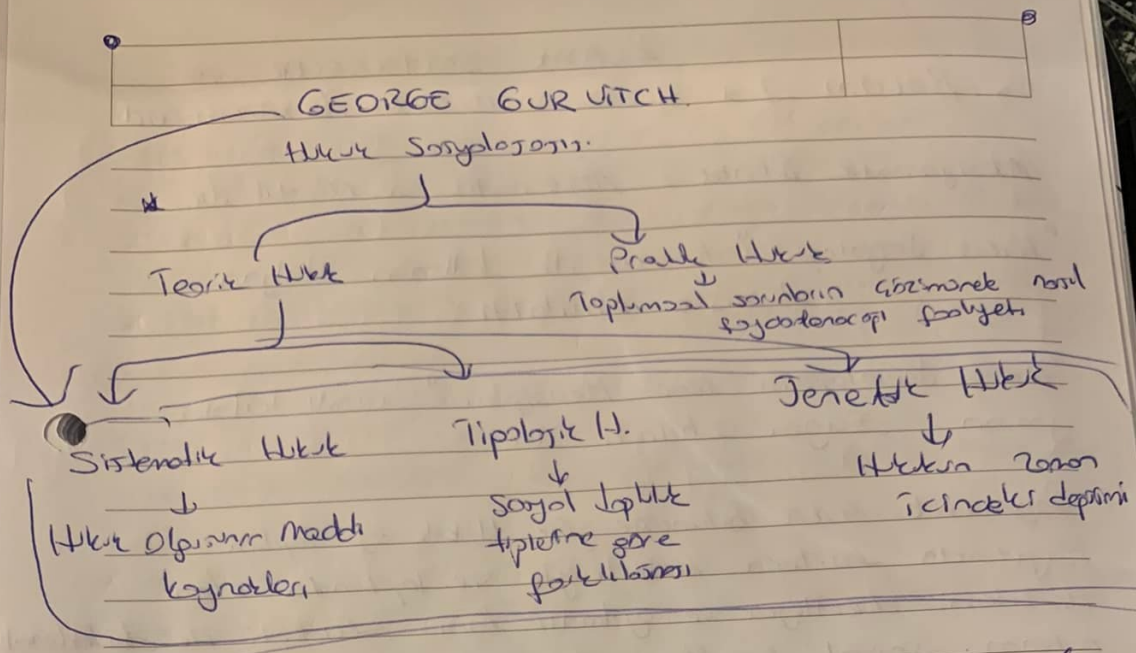 GEORGE GURVITCH
Hukuk Sosyolojisi.
Teorik Hukuk
Pratik Hukuk
Toplumsal sorunların çözümünde nasıl
faydalanacağı faaliyeti
Sistematik Hukuk
Tipolojik H.
Jenetik Hukuk
Hukuk Olgusunun Maddi
kaynakları
Sosyal topluluk
tiplerine göre
farklılaşması
Hukukun zaman
içindeki değişimi